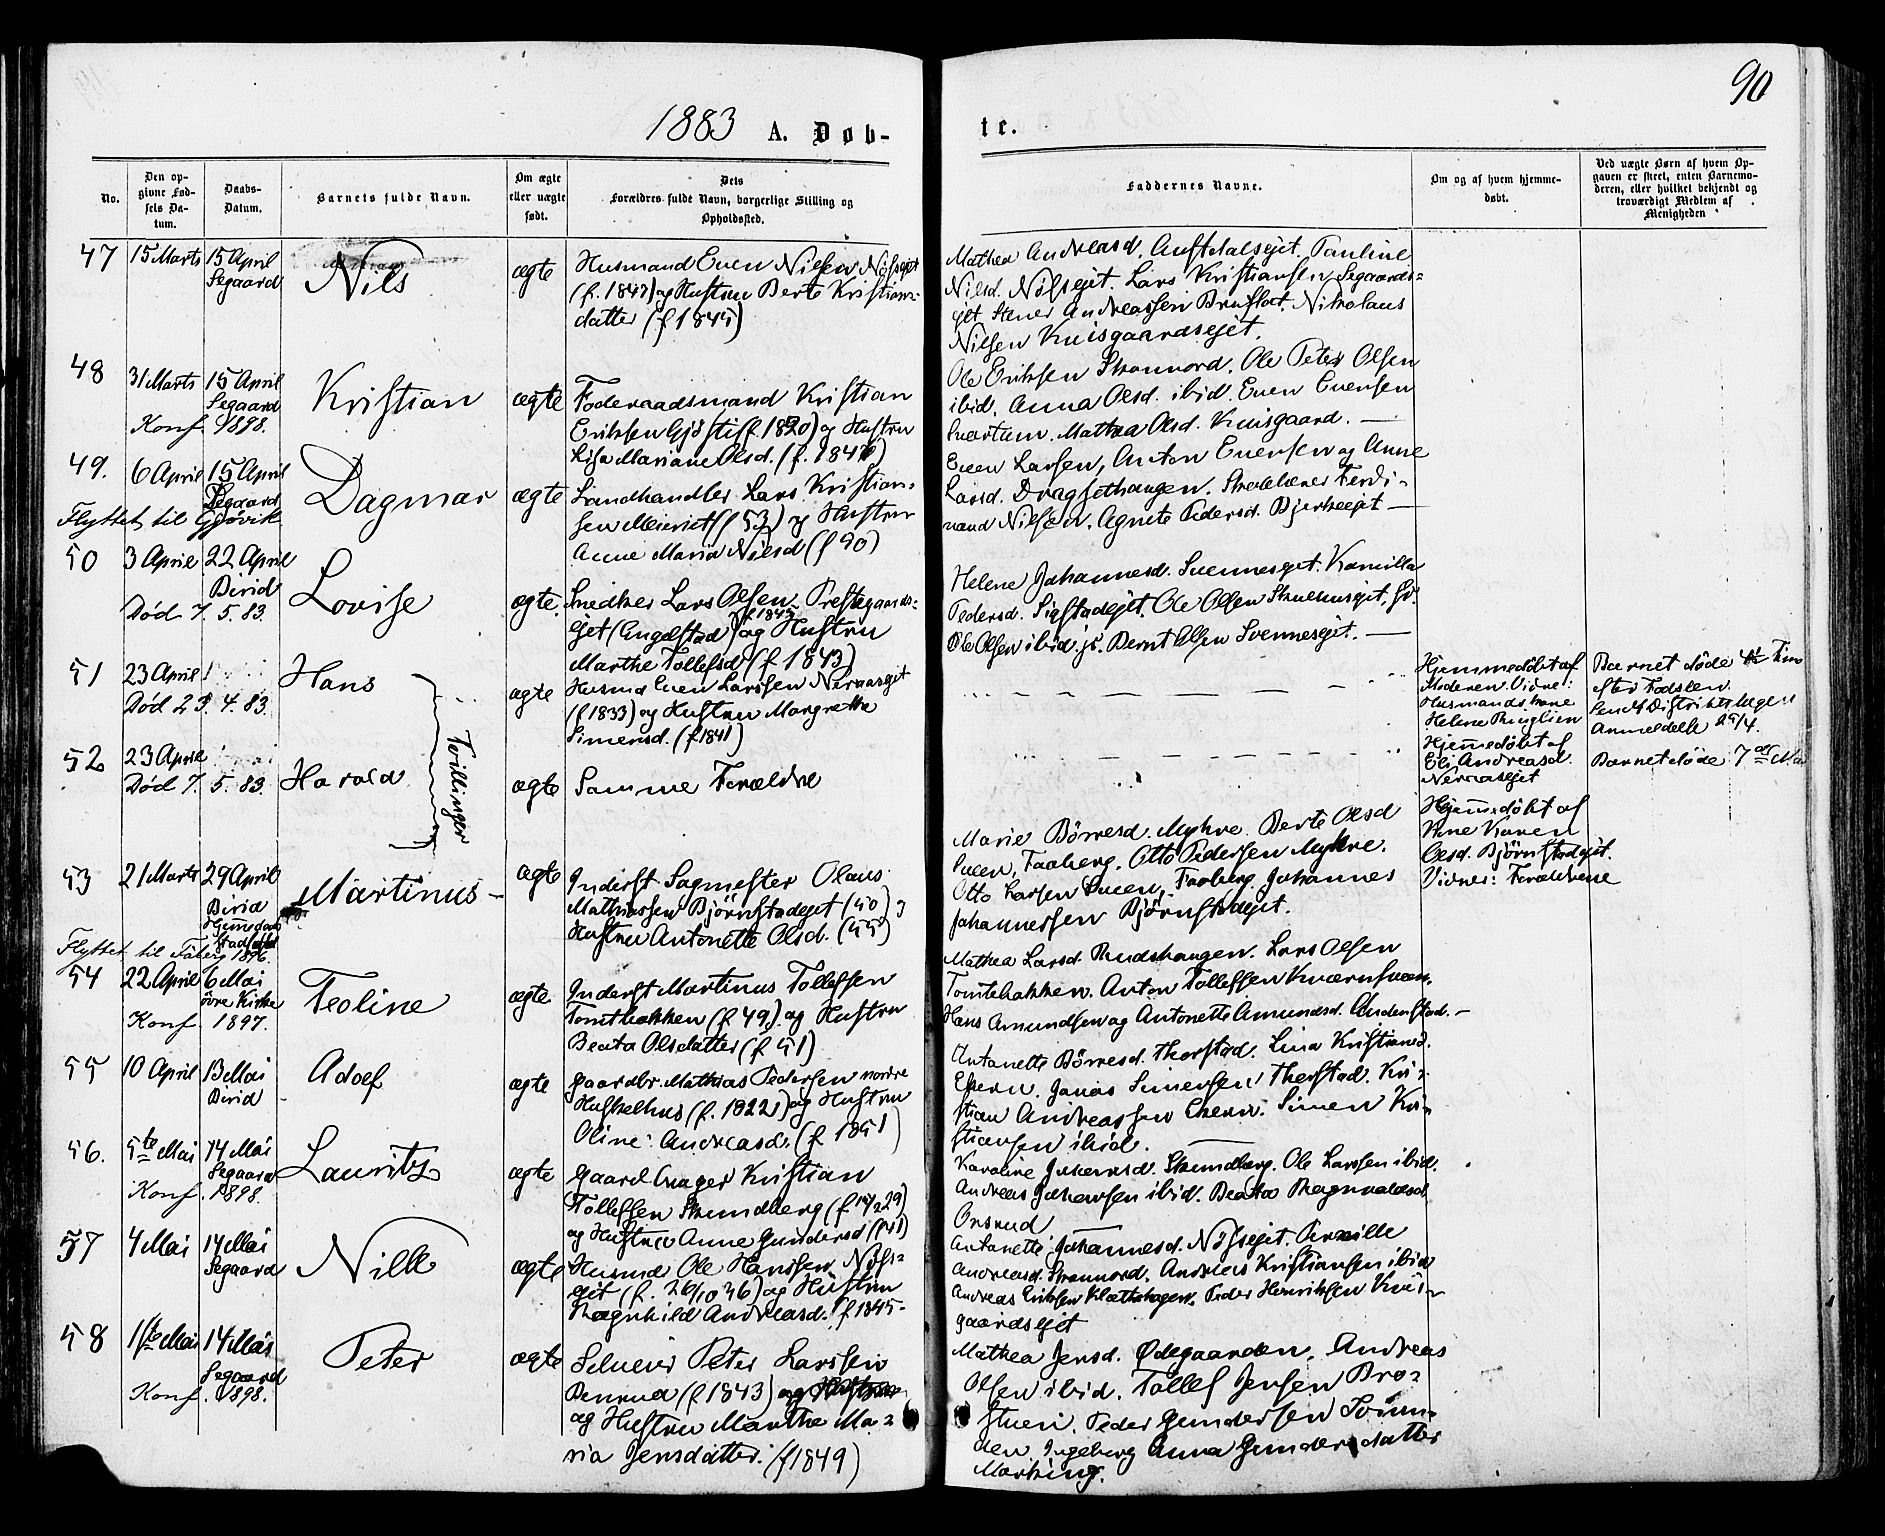 90
1883 A. Døb-
te.
No.
Den op-
givne Fød-
sels Da-
tum.
Daabs-
Datum.
Barnets fulde Navn.
Om ægte
eller uægte
født.
Dets
Forældres fulde Navn, borgerlige Stilling og
Opholdssted.
Faddernes Navne.
Om og af hvem hjemme-
døbt.
Ved uægte Børn af hvem Op-
gaven er skeet, enten Barnemo-
deren, eller hvilket bekjendt og
troværdigt Medlem af
Menigheden
47 15 Marts 15 April
Segaard
Nils
ægte
Husmand Even Nilsen Nøssejet
(f. 1847) og Hustru Berte Kristians-
datter (f 1845)
Mathea Andreasd. Pauline
Nilsd. Nøsseiet. Lars Kristiansen Segaards-
ejet Andreassen Bruflat. Nikolaus
Nilsen Kuisgaardsejet.
48 31 Marts 15 April
Segaard
Konf. 1898.
Kristian
ægte
Føderaadsmand Kristian
Eriksen Gjøsti (f. 1820) og Hustru
Lisa Mariane Olsd. (f. 1846)
Ole Eriksen Strannord. Ole Peter Olsen
ibid. Anna Olsd. ibid. Even Evensen
Svartum. Mathea Olsd. Kuisgaard. —
49. 6 April 15 April
Segaard
Flyttet til Gjøvik
Dagmar
ægte
Landhandler Lars Kristian-
sen Meieriet (f 53) og Hustru
Anne Maria Nilsd (f 90)
Even Larsen, Anton Evensen og Anne
Larsd. Dragsethaugen. Ferdi-
nand Nilsen. Agnete Pedersd. Bjerkeejet —
50 3 April 22 April
Birid
Død 7. 5. 83.
Lovise
ægte.
Snedker Lars Olsen Prestegaards-
ejet (Engelstad) f. 1845 og Hustru
Marthe Tollefsd (f 1843)
Helene Johannesd. Svennesejet. Kamilla
Pedersd. Sigstadejet. Ole Olsen Skuehusejet, sr.
Ole Olsen ibid. jr. Bernt Olsen Svennesejet. —
51 23 April
Død 23. 4. 83.
Hans
Tvillinger
ægte
Husmd Even Larssen Nervaseget
(f 1833) og Hustru Margrethe
Simensd. (f 1841)
Hjemmedøbt af
Moderen. Vidne:
Husmandskone
Helene Ruuglien
Barnet døde 1/2 Time
efter Fødslen.
Sendt Distriktslægen
Anmeldelse 25/4.
52 23 April
Død 7. 5. 83.
Harald
ægte
Samme Forældre
Hjemmedøbt af
Eli Andreasd.
Nervasejet
Barnet døde 7de Mai
53 21 Marts 29 April
Birid
Flyttet til Fåberg 1896.
Martinus —
ægte
Inderst Sagmester Olaus
Mathiassen Bjørnstadejet (40) &
Hustru Antonette Olsd. (45)
Marie Børresd. Myhre. Berte Olsd
Sveen, Faaberg. Otto Pedersen Myhre.
Otto Larsen Sveen, Faaberg. Johannes
Johannessen Bjørnstadejet.
Hjemmedøbt af
Karen
Olsd. Bjørnstadejet.
Vidner: Forældrene
54 22 April 6 Mai
övre Kirke
Konf. 1897.
Teoline
ægte
Inderst Martinus Tollefsen
Tomthakken (f. 49) og Hustru
Beata Olsdatter (f 51)
Mathea Larsd. Rudshaugen. Lars Olsen
Tomtehakken. Anton Tollefsen Kværnsveen.
Hans Amundsen og Antonette Amundsd. —
55 10 April 13 Mai
Birid
Adolf
ægte
Gaardbr. Mathias Pedersen nordre
Huskelhus (f. 1822) og Hustru
Oline Andreasd. (f. 1851)
Antonette Børresd. Thorstad. Lina Kristiansd.
Ekern. Jonas Simensen Thorstad. Kri-
stian Andreassen Ekern. Simen Kri-
stiansen ibid.
56. 5te Mai 14 Mai
Segaard
Konf. 1898.
Lauritz
ægte
Gaardbruger Kristian
Tollefsen Skundberg (f 14/2 29)
og Hustru Anne Gundersd (f 41)
Karoline Skundberg. Ole Larssen ibid.
Andreas Johansen ibid. Beata Ragnvaldsd.
Onsrud
57 4 Mai 14 Mai
Segaard
Nille
ægte
Husmd Ole Hanssen Nøss-
ejet (f. 26/10 36) og Hustru
Ragnhild Andreasd. f 1845-
Antonette Johannesd. Nøssejet. Pernille
Andreasd. Strannord. Andreas Kristiansen ibid
Andreas Eriksen Klætthagen. Peder Henriksen Kuis-
gaardsejet
58 1ste Mai 14 Mai
Segaard
Konf. 1898.
Peter
ægte
Selveier Peter Larssen
Benrud (f. 1843) og Hustru
og Hustru Marthe Ma-
ria Jensdatter. (f 1849)
Mathea Jensd. Ødegaarden. Andreas
Olsen ibid. Tollef Jensen Bro-
stuen. Peder Gundersen
Ingeborg Anna Gundersdatter